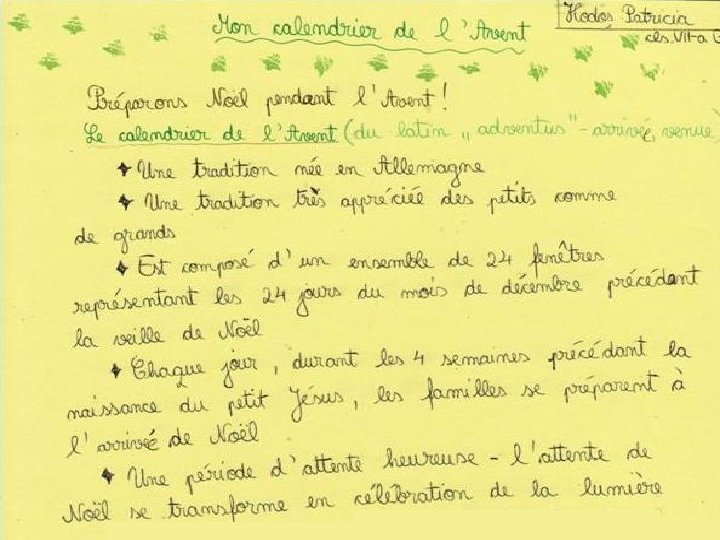 Mon calendrier de l'Avent
Hodos Patricia
cls. VII-a
Préparons Noël pendant l'Avent!
Le calendrier de l'Avent (du latin „adventus"-arrivée, venue)
Une tradition née en Allemagne
Une tradition très appréciée des petits comme
de grands
Est composé d'un ensemble de 24 fenêtres
représentant les 24 jours du mois de décembre précédant
la veille de Noël
Chaque jour, durant les 4 semaines précédant la
naissance du petit Jésus, les familles se préparent à
l'arrivée de Noël
Une période d'attente heureuse - l'attente de
Noël se transforme en célébration de la lumière